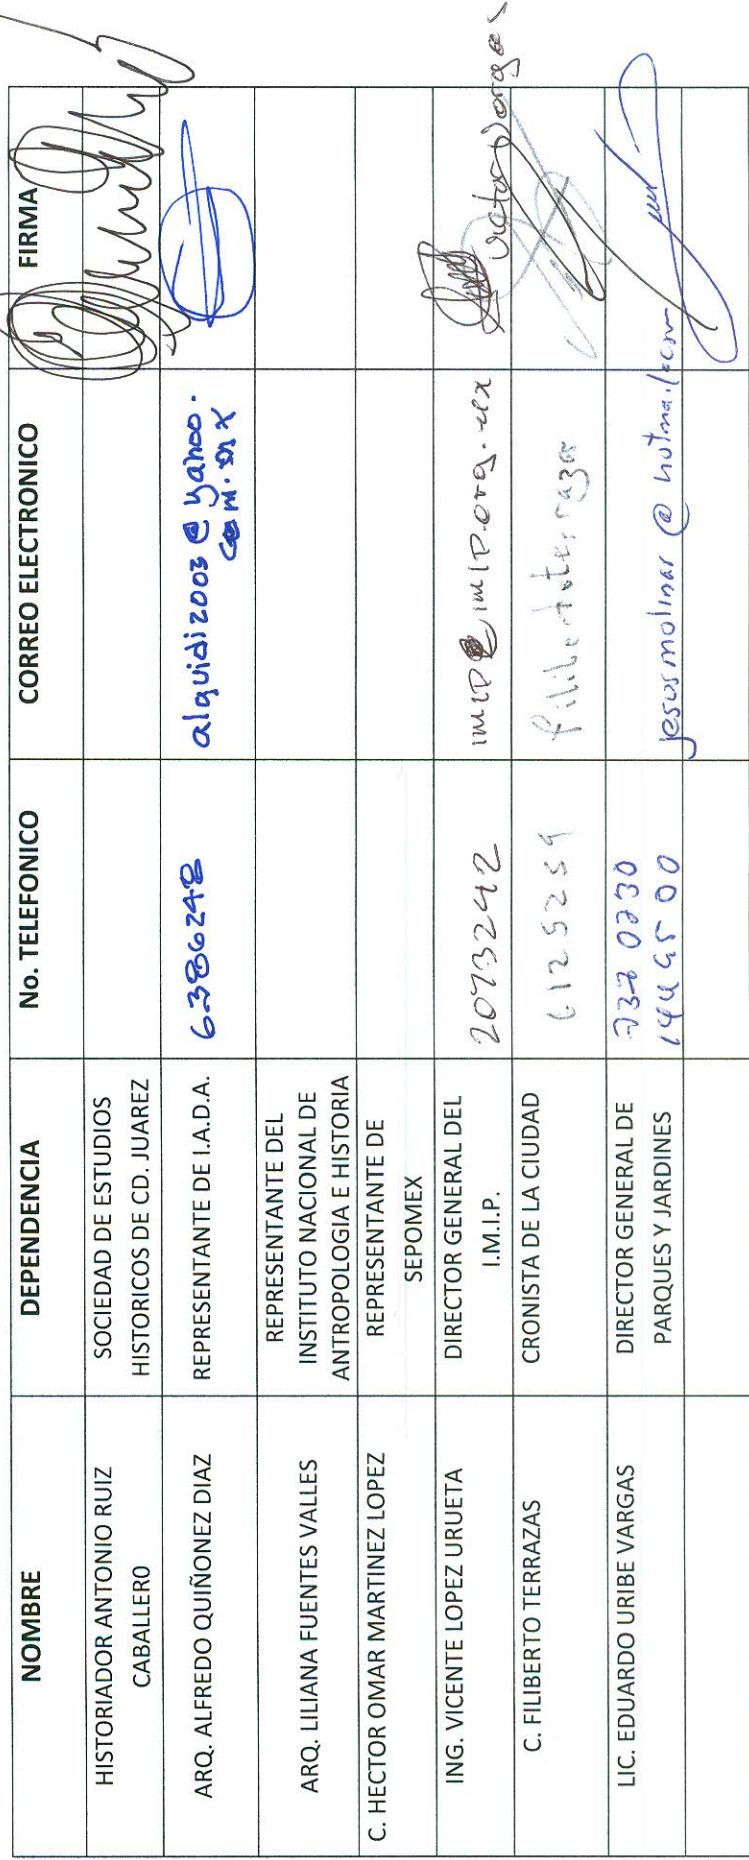 NOMBRE DEPENDENCIA No. TELEFONICO CORREO ELECTRONICO FIRMA
HISTORIADOR ANTONIO RUIZ
CABALLERO
SOCIEDAD DE ESTUDIOS
HISTORICOS DE CD. JUAREZ
ARQ. ALFREDO QUIÑONEZ DIAZ
REPRESENTANTE DE I.A.D.A.
6386248
alquidi2003@yahoo.
com.mx
ARQ. LILIANA FUENTES VALLES
REPRESENTANTE DEL
INSTITUTO NACIONAL DE
ANTROPOLOGIA E HISTORIA
C. HECTOR OMAR MARTINEZ LOPEZ
REPRESENTANTE DE
SEPOMEX
ING. VICENTE LOPEZ URUETA
DIRECTOR GENERAL DEL
I.M.I.P.
2073242
imip@imip.org.mx
C. FILIBERTO TERRAZAS
CRONISTA DE LA CIUDAD
6125259
LIC. EDUARDO URIBE VARGAS
DIRECTOR GENERAL DE
PARQUES Y JARDINES
jesusmolinar@hotmail.com